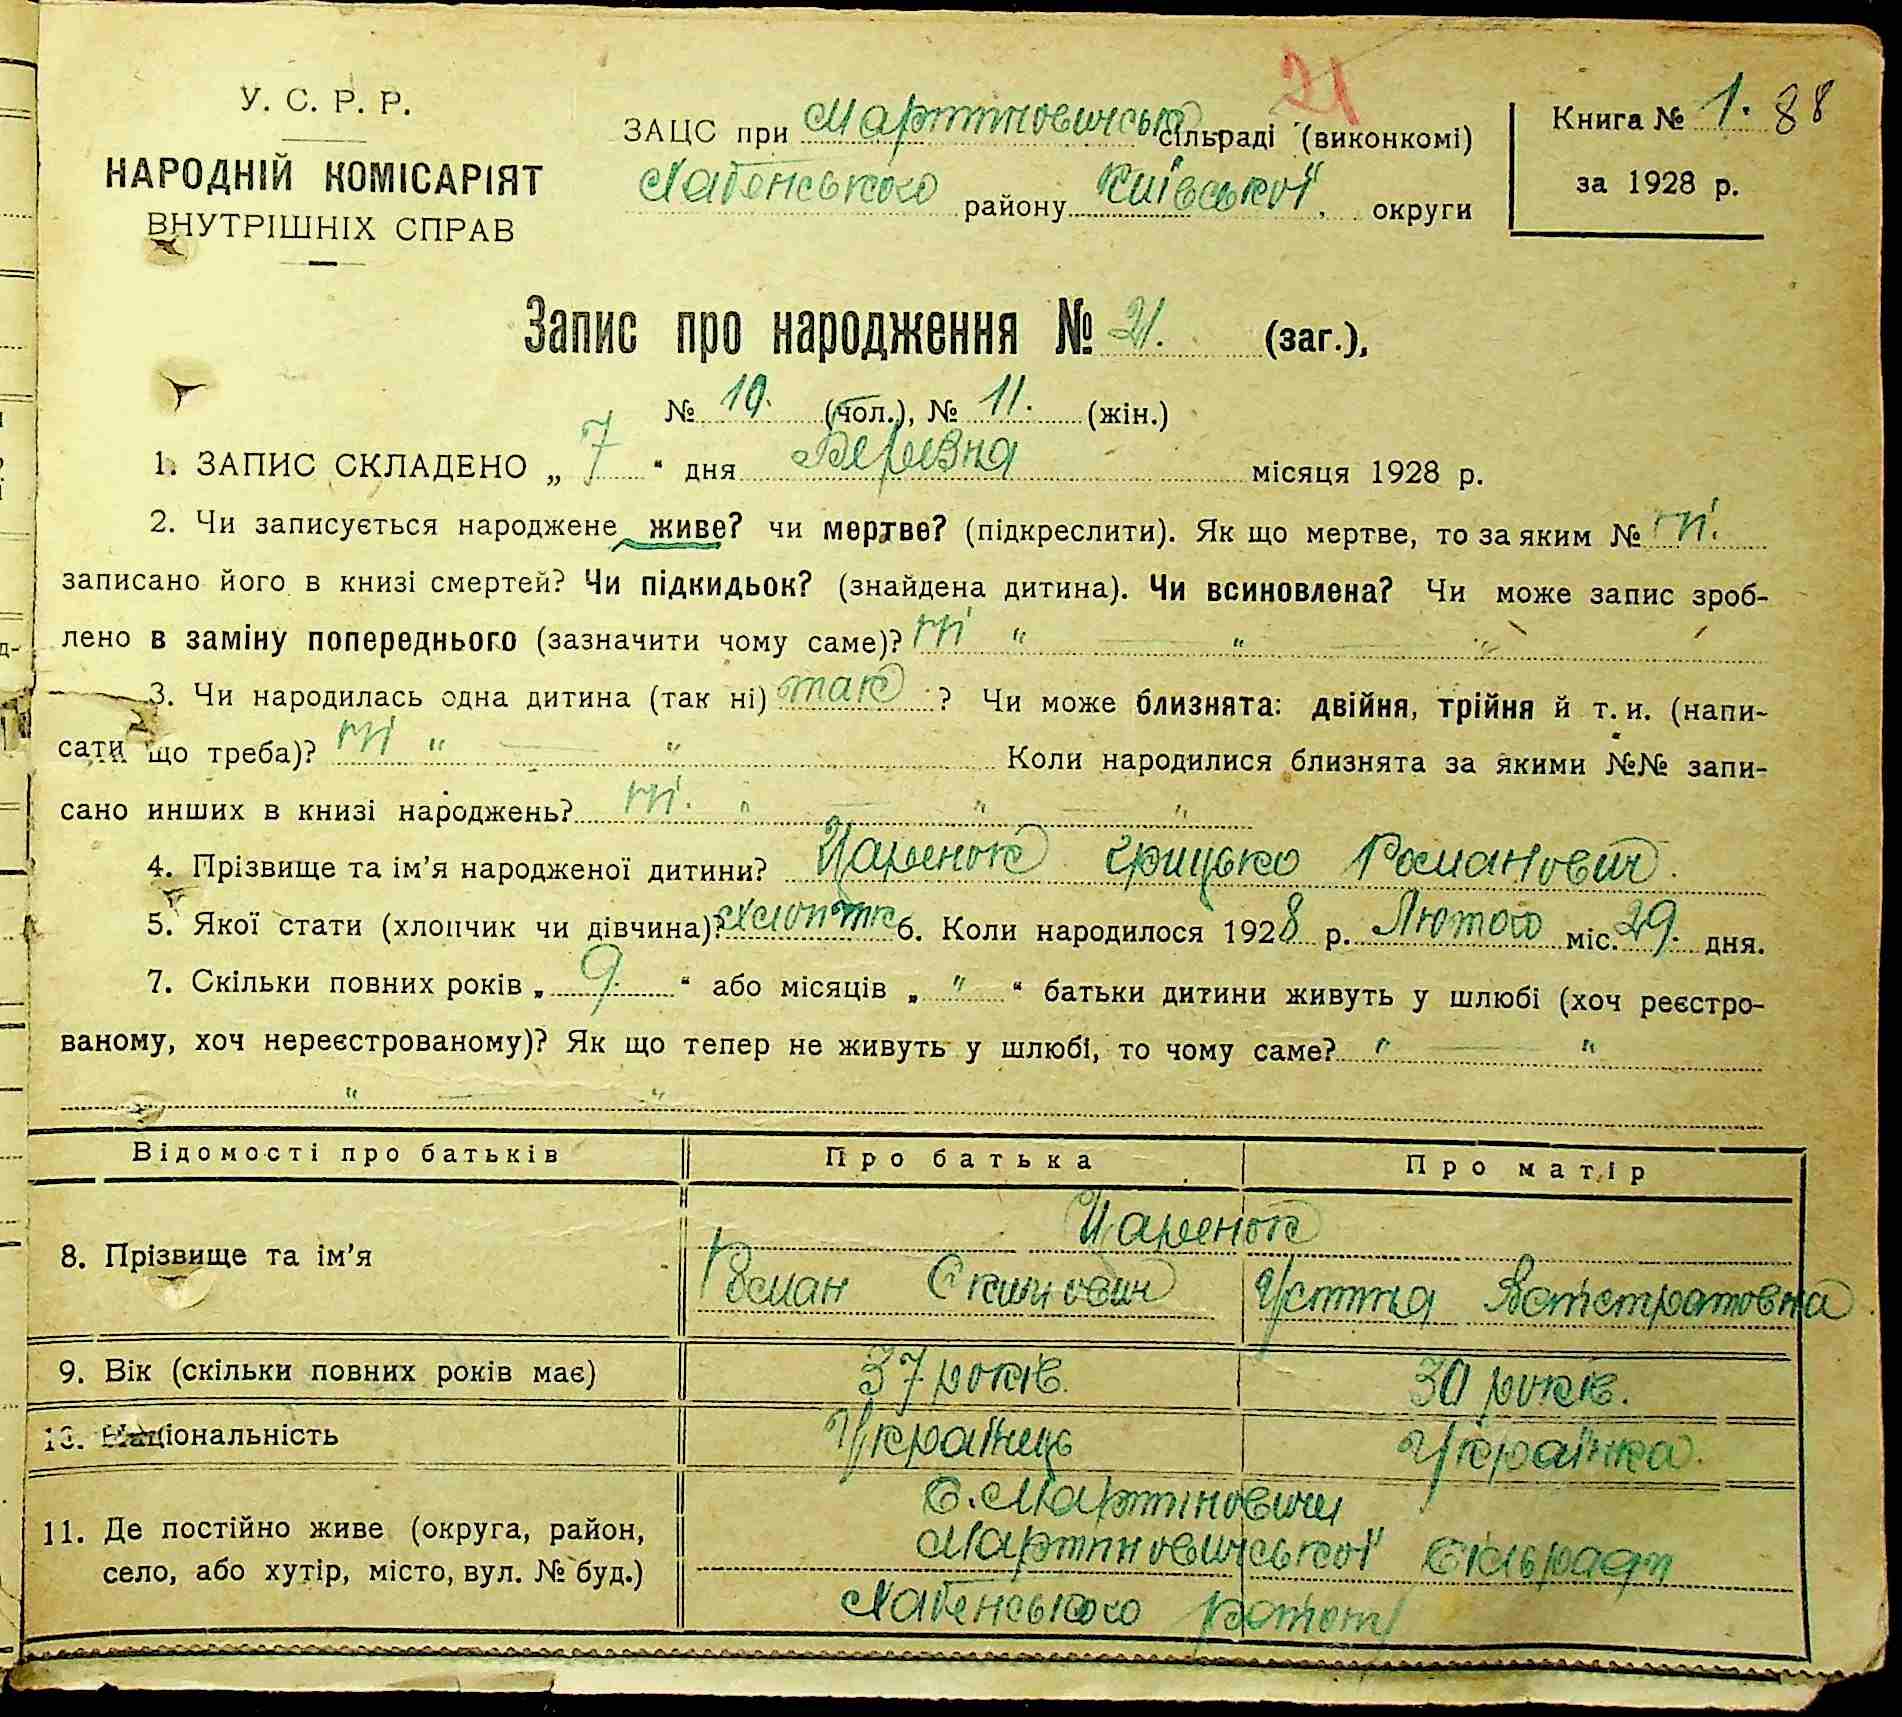 21
У. С. Р. Р.
НАРОДНІЙ КОМІСАРІЯТ
ВНУТРІШНІХ СПРАВ
ЗАЦС при Мартиновичській сільраді (виконкомі)
Хабенського району Київської округи
Книга № 1. 88
за 1928 р.
Запис про народження № 21. (заг.),
№ 10. (чол.), № 11. (жін.)
1. ЗАПИС СКЛАДЕНО „ 7 “ дня Березня місяця 1928 р.
2. Чи записується народжене живе? чи мертве? (підкреслити). Як що мертве, то за яким № ні.
записано його в книзі смертей? Чи підкидьок? (знайдена дитина). Чи всиновлена? Чи може запис зроб-
лено в заміну попереднього (зазначити чому саме)? ні " — " — "
3. Чи народилась одна дитина (так ні) так ? Чи може близнята: двійня, трійня й т. и. (напи-
сати що треба)? ні " — " Коли народилися близнята за якими №№ запи-
сано инших в книзі народжень? ні. " — " — "
4. Прізвище та ім’я народженої дитини? Царенок Грицько Романович.
5. Якої стати (хлопчик чи дівчина)? 6. Коли народилося 1928 р. Лютого міс. 29. дня.
7. Скільки повних років „ 9. “ або місяців „ " “ батьки дитини живуть у шлюбі (хоч реєстро-
ваному, хоч нереєстрованому)? Як що тепер не живуть у шлюбі, то чому саме? " — "
" — "
Відомості про батьків Про батька Про матір
8. Прізвище та ім’я Царенок
Роман Устина
9. Вік (скільки повних років має) 37 років. 30 років.
10. Національність Українець Українка.
11. Де постійно живе (округа, район,
село, або хутір, місто, вул. № буд.)
С. Мартиновичи
Мартиновичської Сільради
Хабенського району